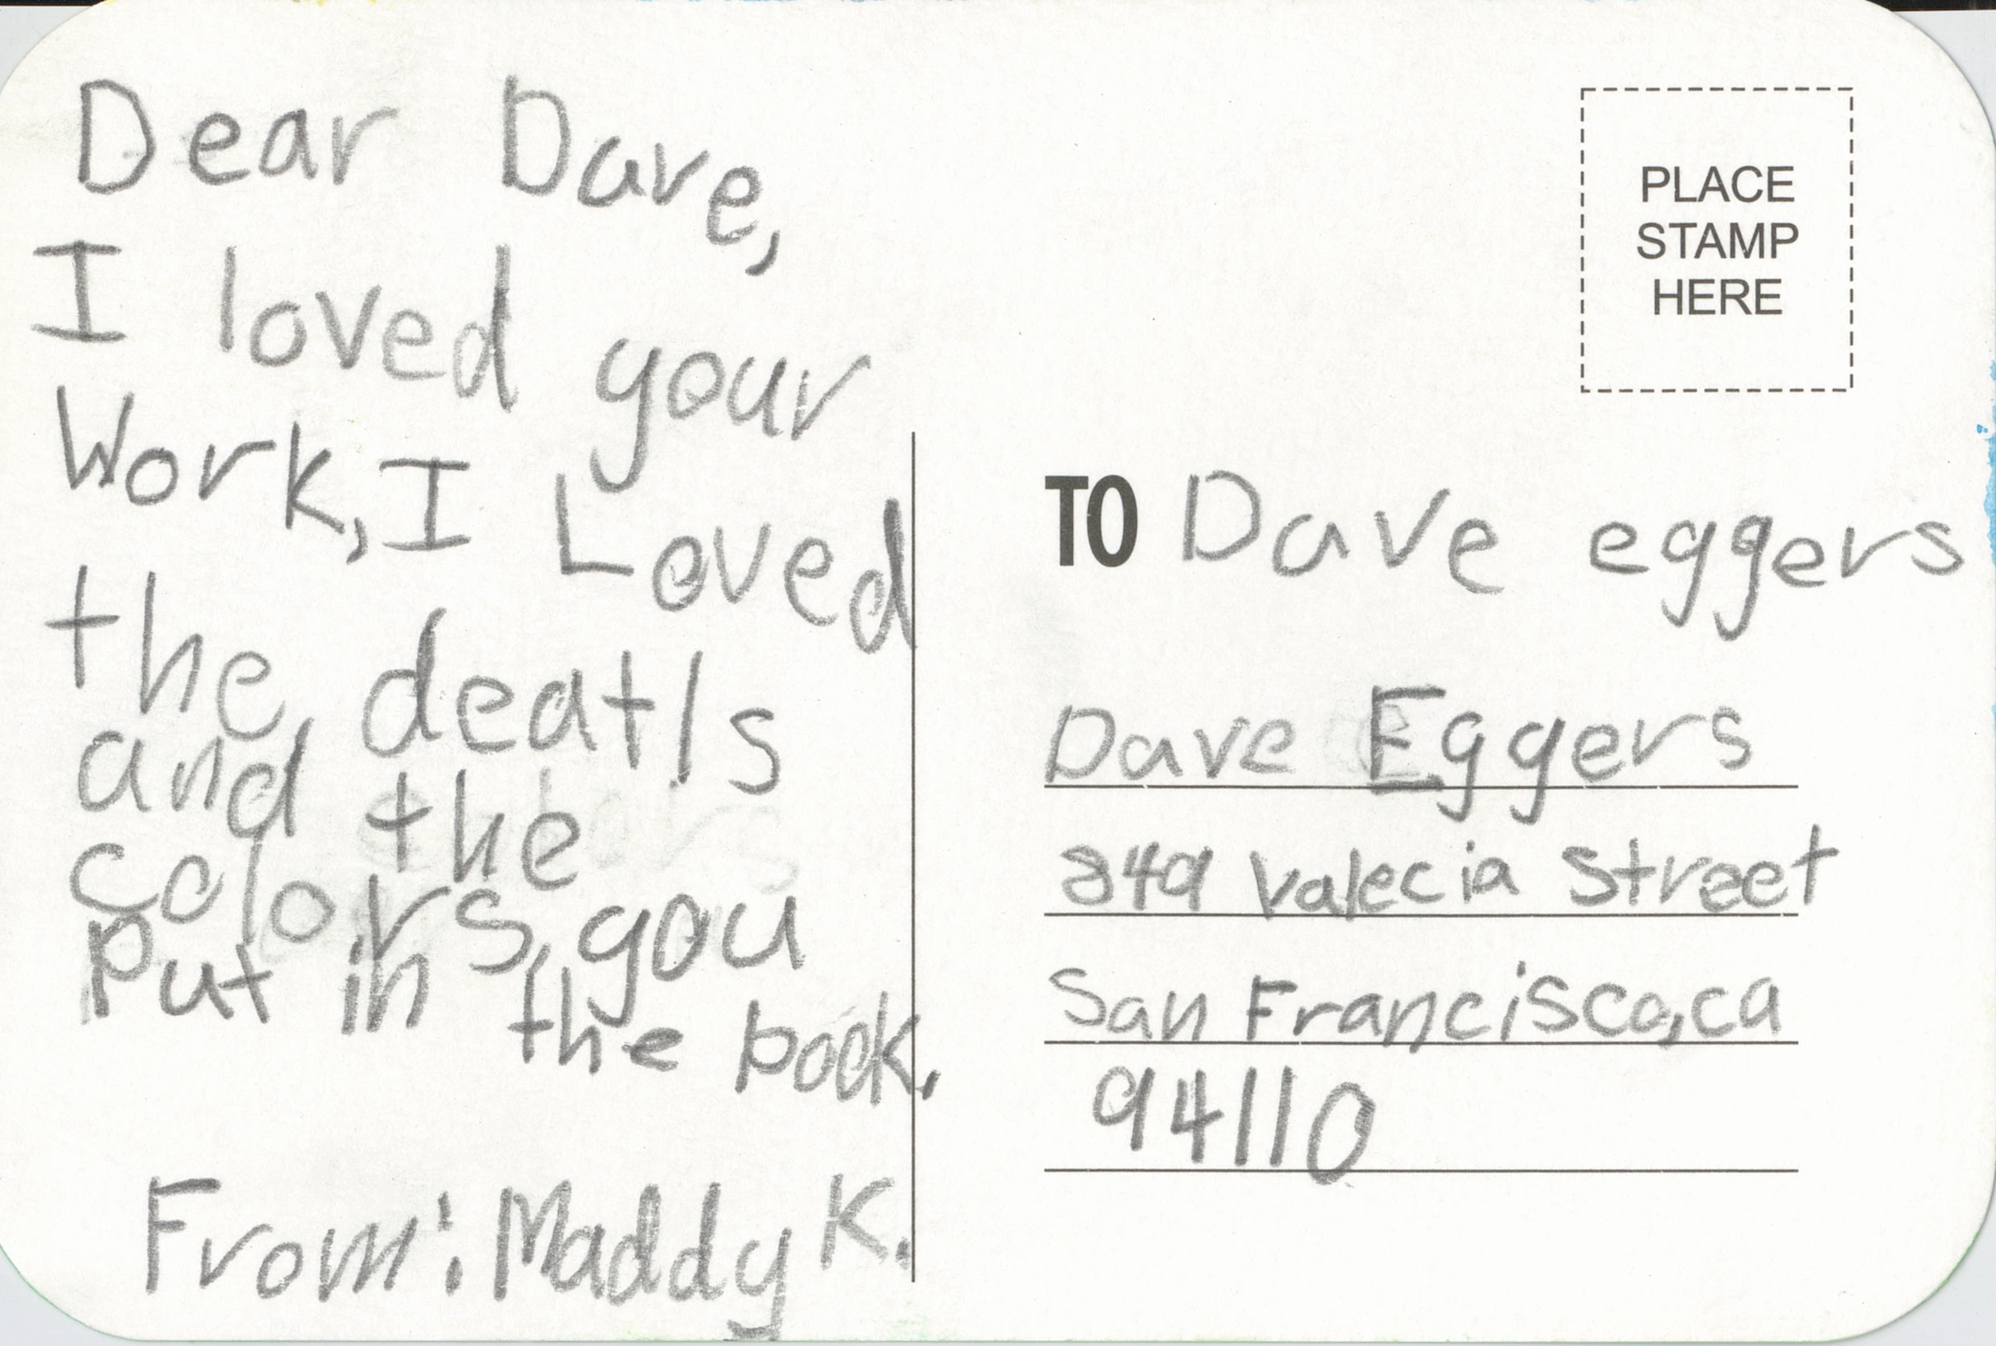 Dear Dave,
I loved your
Work, I Loved
the deatls
and the
colors, you
put in the book.
From: Maddy K.
PLACE
STAMP
HERE
TO Dave eggers
Dave Eggers
849 Valecia Street
San Francisco, ca
94110